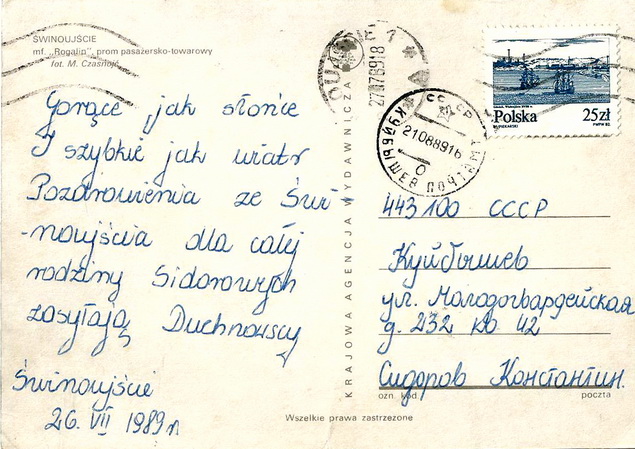 ŚWINOUJŚCIE
mf. „Rogalin", prom pasażersko-towarowy
fot. M. Czasnojć
Gorące jak słońce
I szybkie jak wiatr
Pozdrowienia ze Świ-
-noujścia dla całej
rodziny Sidorowych
zasyłają Duchnowscy
Świnoujście
26. VII 1989 r
KRAJOWA AGENCJA WYDAWNICZA
1
27.07.89.18
СССР
21088916
КУЙБЫШЕВ ПОЧТАМТ
Polska 25zł
443100 СССР
Куйбышев
ул. Молодогвардейская
д. 232 кв 42
Сидоров Константин.
ozn. kod. poczta
Wszelkie prawa zastrzeżone